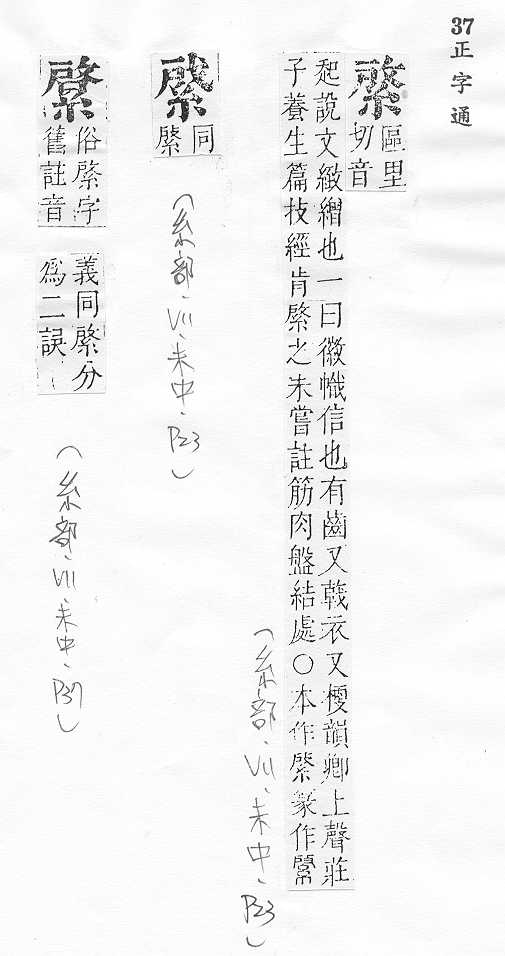 37正字通
綮
區里
切音
起說文緻繒也一曰徽幟信也有齒又戟衣又梗韻卿上聲莊
子養生篇技經肯綮之未嘗註筋肉盤結處○本作綮篆作綮
(糸部、VII、未中、P23)
綮
同
綮
(糸部、VII、未中、P23)
綮
俗綮字
舊註音
義同綮分
爲二誤
(糸部、VII、未中、P37)